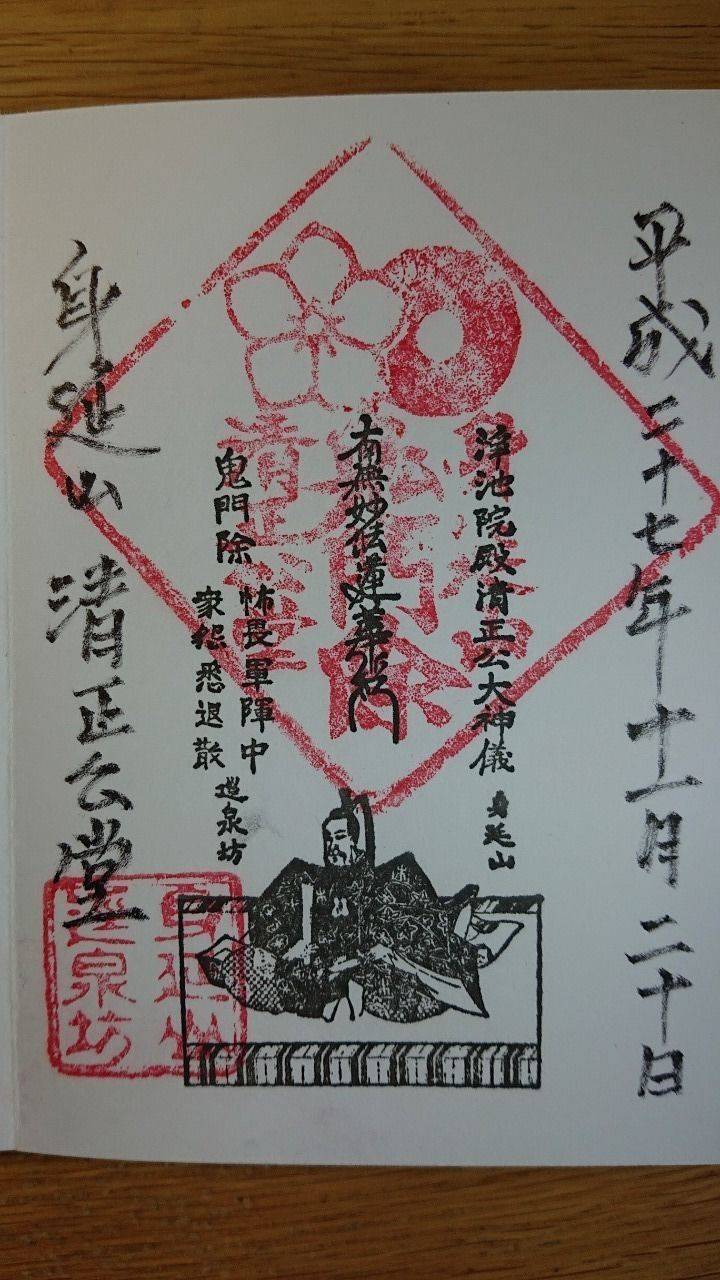 平成二十七年十一月二十日
浄池院殿清正公大神儀 身延山
南無妙法蓮華経
鬼門除
怖畏軍陣中
衆怨悉退散
逕泉坊
身延山 清正公堂
鬼門除
清正公堂
身延山
逕泉坊